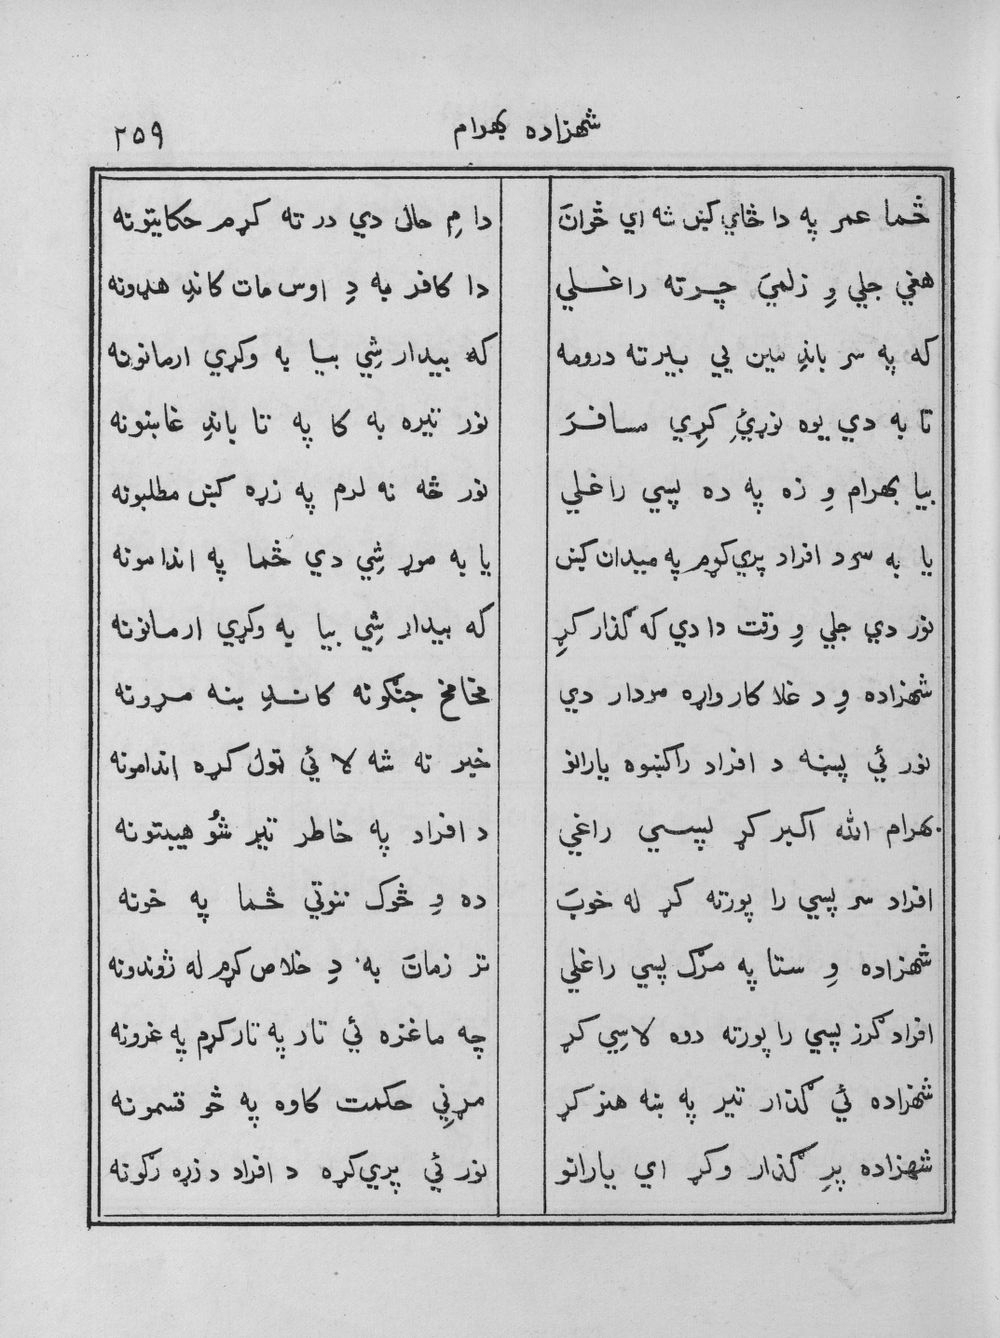 شهزاده بهرام ۲۵۹
څما عمر په دا ځاي کښ شه اي ځوانَ دا مِ حال دي در ته کړم حکايتونه
هغي جلي وِ زلميَ چرته راغلي دا کافر به دِ اوس مات کاندِ هډونه
که په سر باندِ مين يي بيرته درومه که بيدار شِي بيا به وکړي ارمانونه
تا به دي يوه نوړئِ کړِي مسافرَ نور تيره به کا په تا باندِ غاښونه
بيا بهرام وِ زه په ده پسي راغلي نور څه نه لرم په زړه کښ مطلبونه
يا به سر د افراد پرې کړم په ميدان کښ يا به موړ شِي دي څما په اندامونه
نور دي جلي وِ وقت دا دي که ګذار کړِ که بيدار شِي بيا به وکړي ارمانونه
شهزاده وِ د غلا کار واړه مردار دي مخامخ جنګونه کاندِ ښه مړونه
نور ئي پښه د افراد راکښوه يارانو خبر نه شه لا ئي ټول کړه اندامونه
بهرام الله اکبر کړ لپسي راغي د افراد په خاطر تير شوُ هيبتونه
افراد سر پسي را پورته کړ له خوبَ ده وِ څوک ننوتي څما په خونه
شهزاده وِ ستا په مرګ پسي راغلي تر زمانَ به دِ خلاص کړم له ژوندونه
افراد ګرز پسي را پورته دوه لاسِي کړ چه ماغزه ئي تار په تار کړم په غرونه
شهزاده ئي ګذار تير په ښه هنر کړ مړنِي حکمت کاوه په څو قسمونه
شهزاده پرِ ګذار وکړ اي يارانو نور ئي پرې کړه د افراد د زړه رګونه